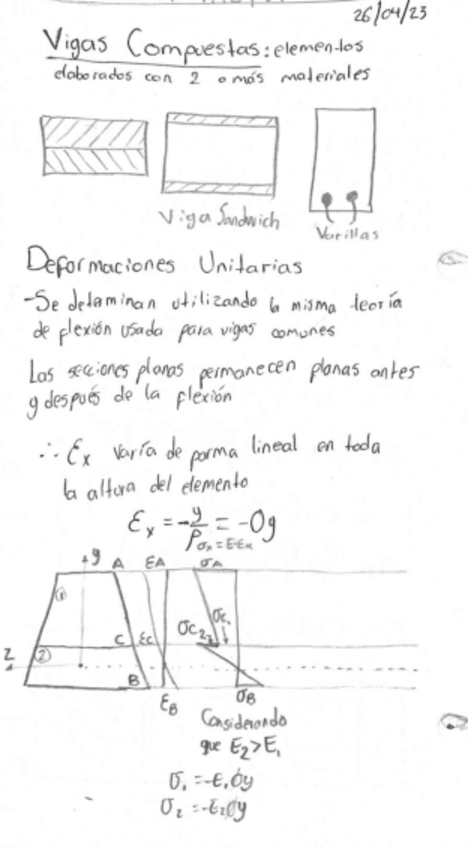 26/04/23
Vigas Compuestas: elementos
elaborados con 2 o más materiales
Viga Sandwich
Varillas
Deformaciones Unitarias
-Se determinan utilizando la misma teoría
de flexión usada para vigas comunes
Las secciones planas permanecen planas antes
y después de la flexión
∴ Ɛx varía de forma lineal en toda
la altura del elemento
Ɛx = -y/ρ = -Oy
σx = EƐx
y A ƐA σA
1
C Ɛc σc2 σc1
z 2
B
ƐB σB
Considerando
que E2 > E1
σ1 = -E1Øy
σ2 = -E2Øy